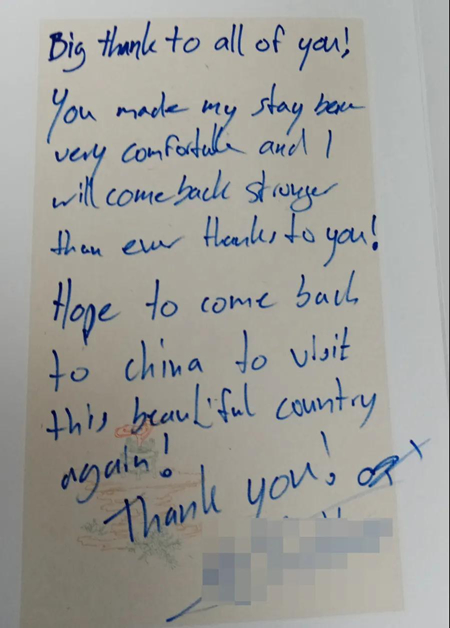 Big thank to all of you!
You made my stay here
very comfortable and I
will come back stronger
than ever thanks to you!
Hope to come back
to china to visit
this beautiful country
again!
Thank you!